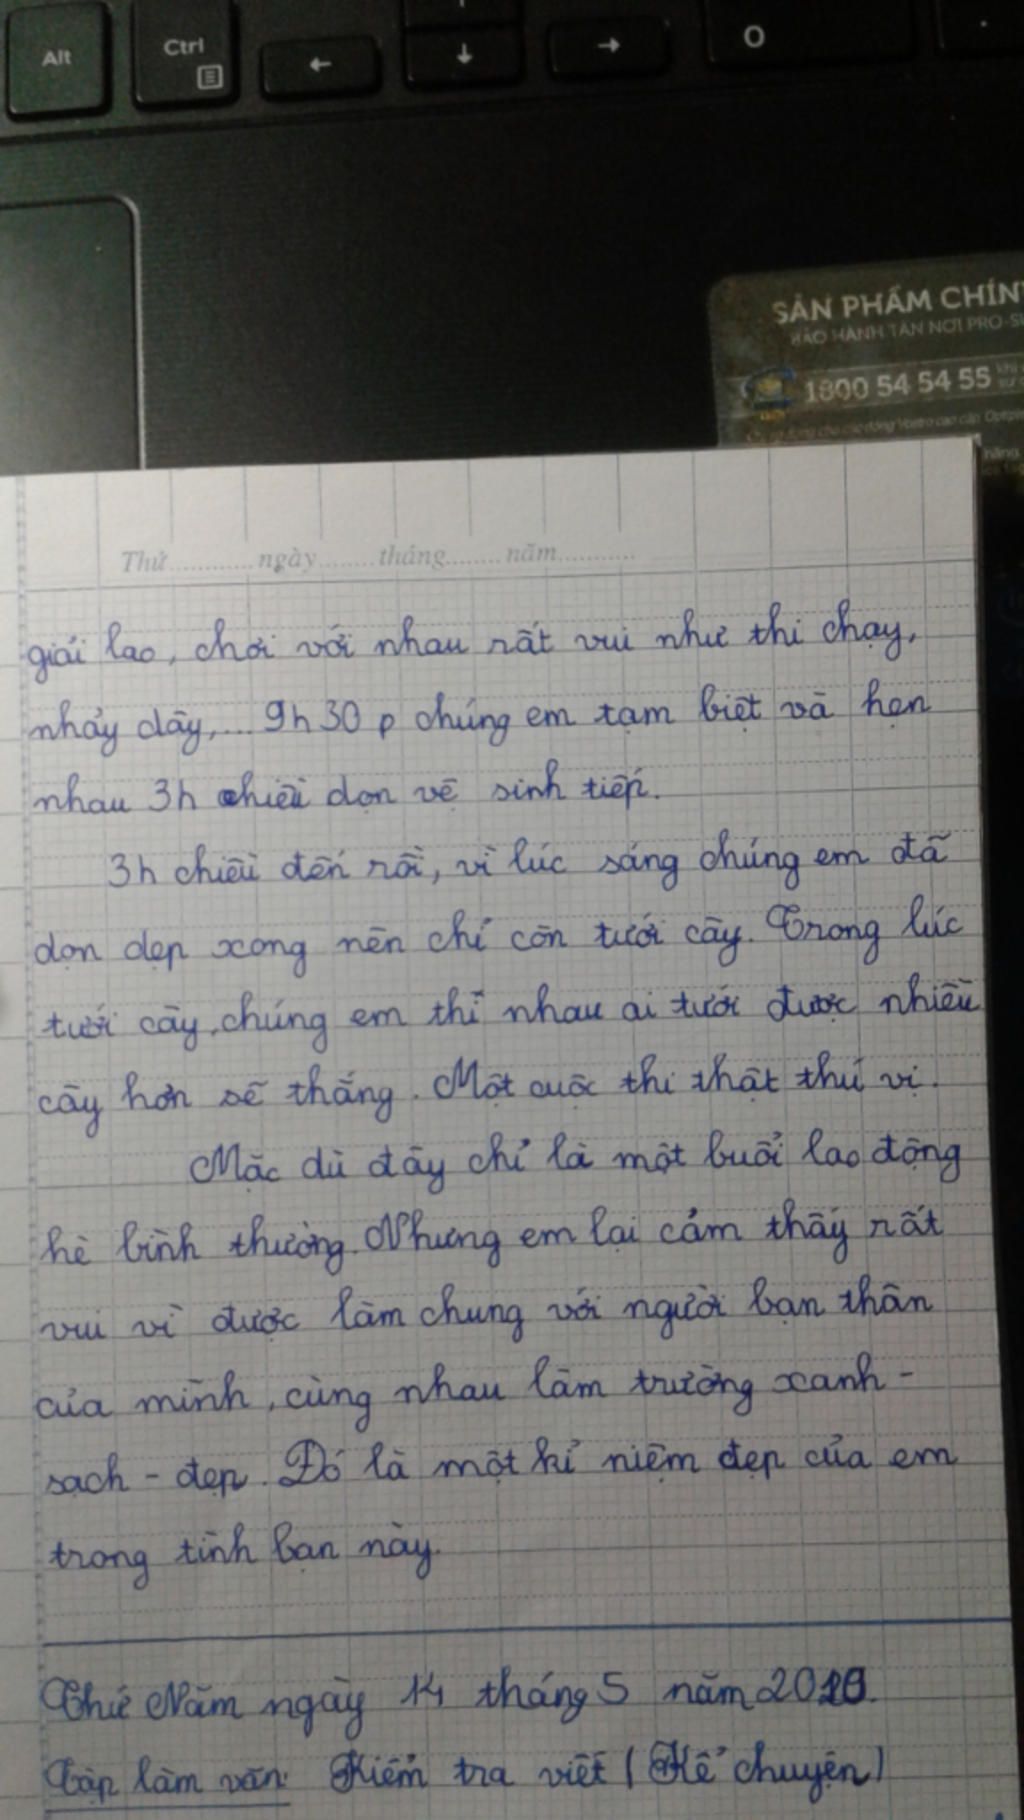 Alt
Ctrl
←
↓
→
O
SẢN PHẨM CHÍN
BẢO HÀNH TẬN NƠI PRO-SU
1800 54 54 55
Thứ............ngày........tháng........năm...........
giải lao, chơi với nhau rất vui như thi chạy,
nhảy dây,... 9h 30 p chúng em tạm biệt và hẹn
nhau 3h chiều dọn vệ sinh tiếp.
3h chiều đến rồi, vì lúc sáng chúng em đã
dọn dẹp xong nên chỉ còn tưới cây. Trong lúc
tưới cây, chúng em thi nhau ai tưới được nhiều
cây hơn sẽ thắng. Một cuộc thi thật thú vị.
Mặc dù đây chỉ là một buổi lao động
hè bình thường. Nhưng em lại cảm thấy rất
vui vì được làm chung với người bạn thân
của mình, cùng nhau làm trường xanh -
sạch - đẹp. Đó là một kỉ niệm đẹp của em
trong tình bạn này.
Thứ Năm ngày 14 tháng 5 năm 2020.
Tập làm văn: Kiểm tra viết (Kể chuyện)